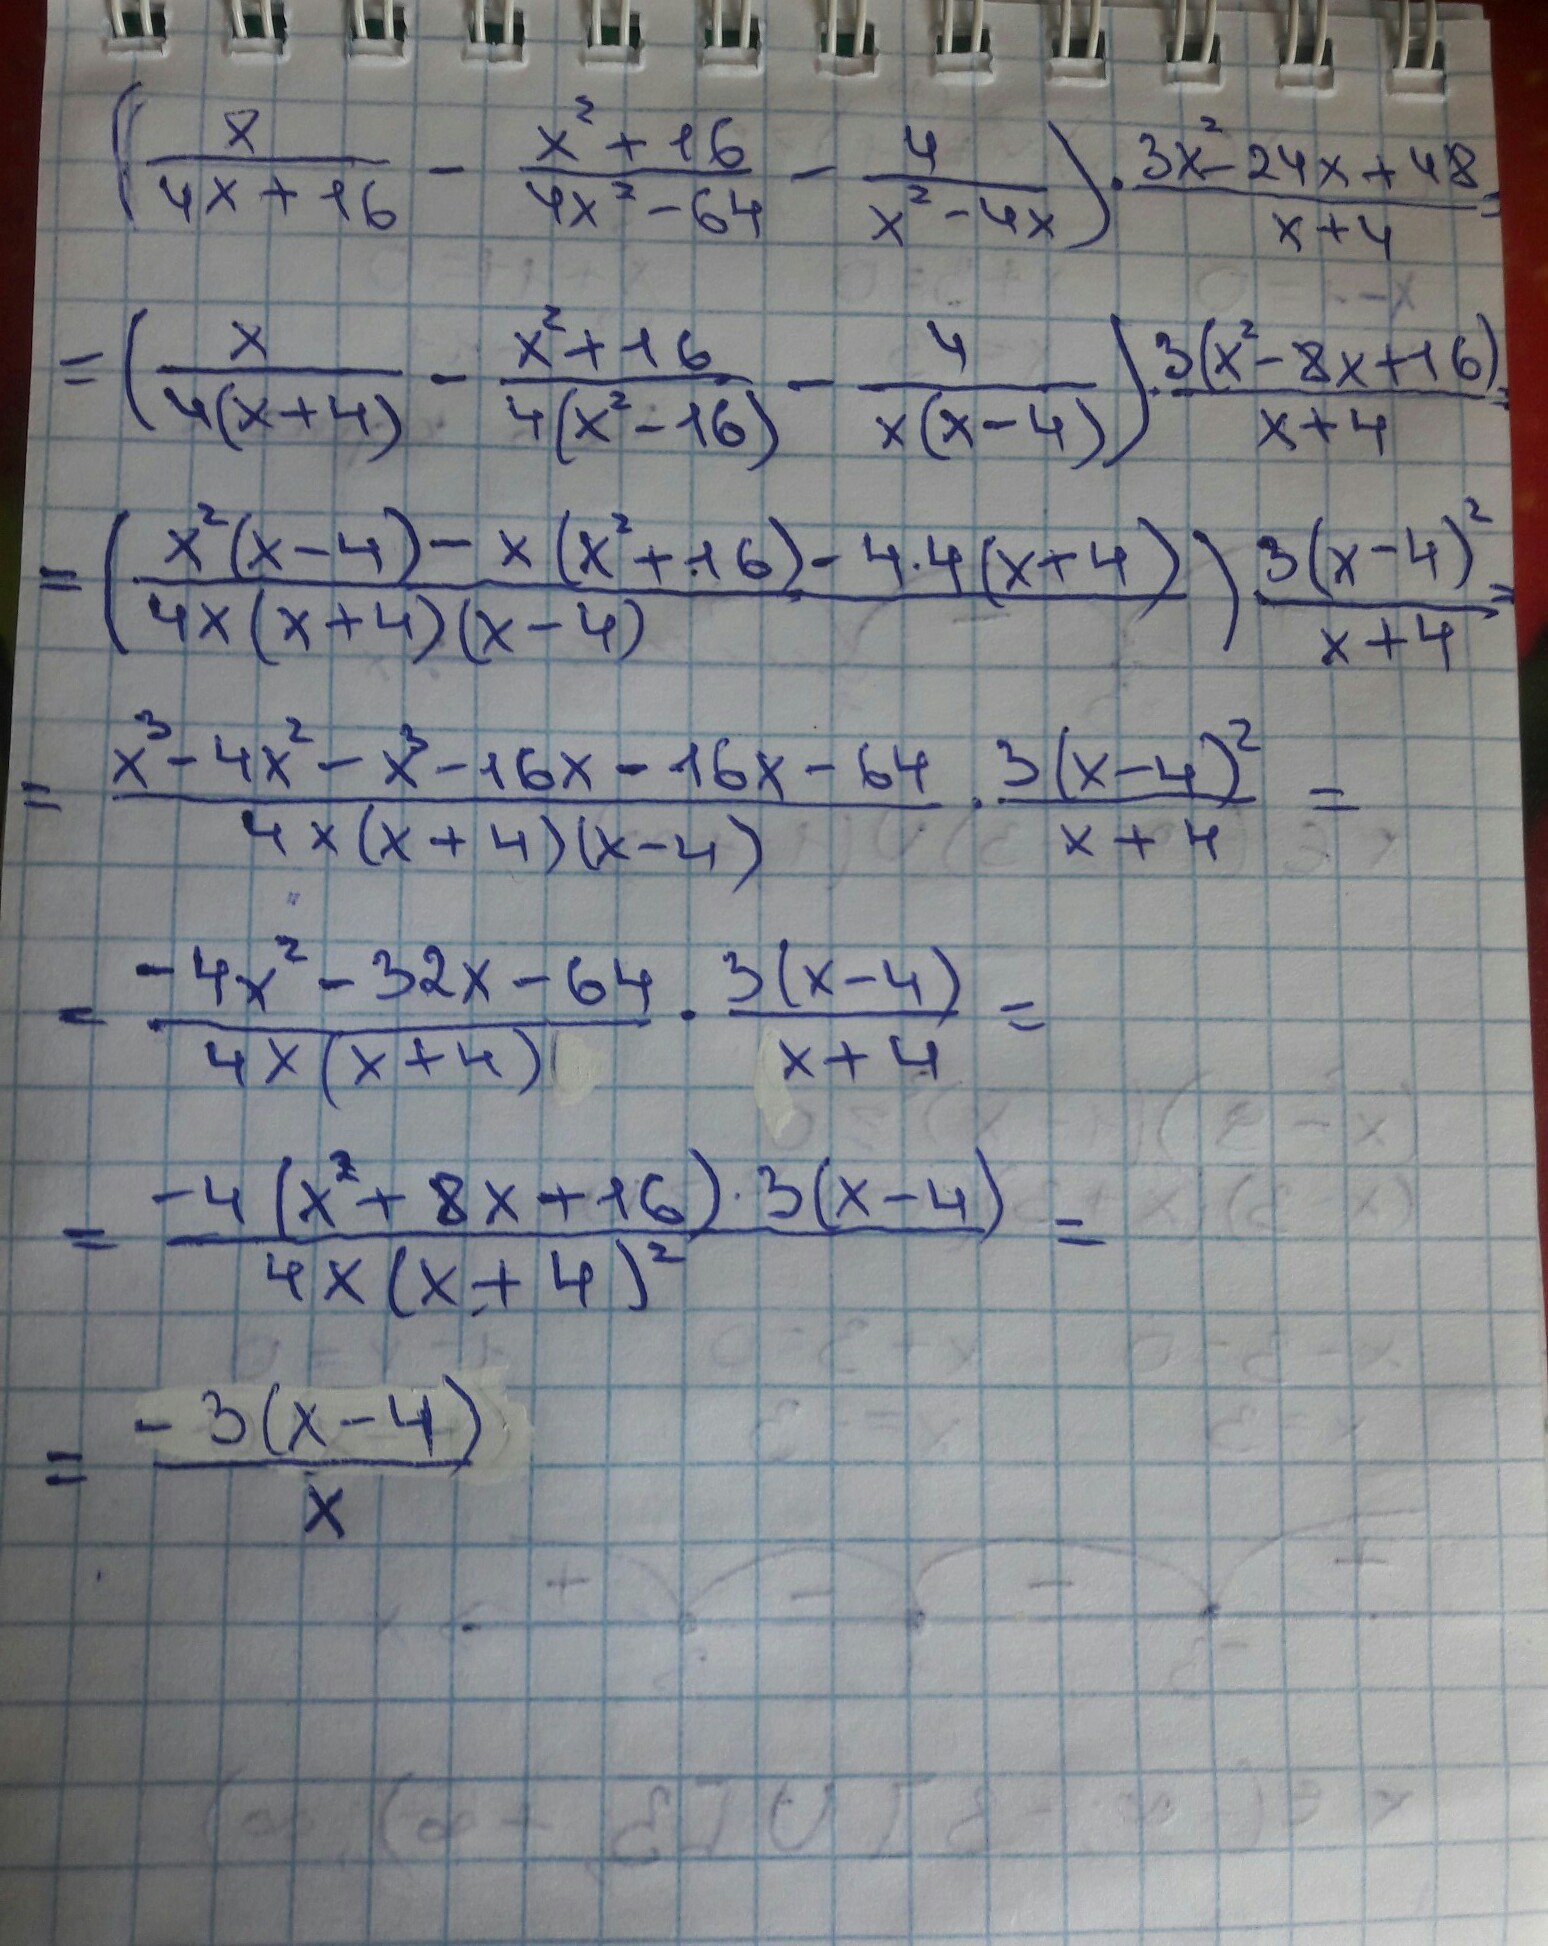 (x/(4x+16) - (x²+16)/(4x²-64) - 4/(x²-4x)) · (3x²-24x+48)/(x+4) =
= (x/(4(x+4)) - (x²+16)/(4(x²-16)) - 4/(x(x-4))) · 3(x²-8x+16)/(x+4) =
= ((x²(x-4) - x(x²+16) - 4·4(x+4))/(4x(x+4)(x-4))) 3(x-4)²/(x+4) =
= (x³-4x²-x³-16x-16x-64)/(4x(x+4)(x-4)) · 3(x-4)²/(x+4) =
= (-4x²-32x-64)/(4x(x+4)) · 3(x-4)/(x+4) =
= (-4(x²+8x+16)·3(x-4))/(4x(x+4)²) =
= -3(x-4)/x